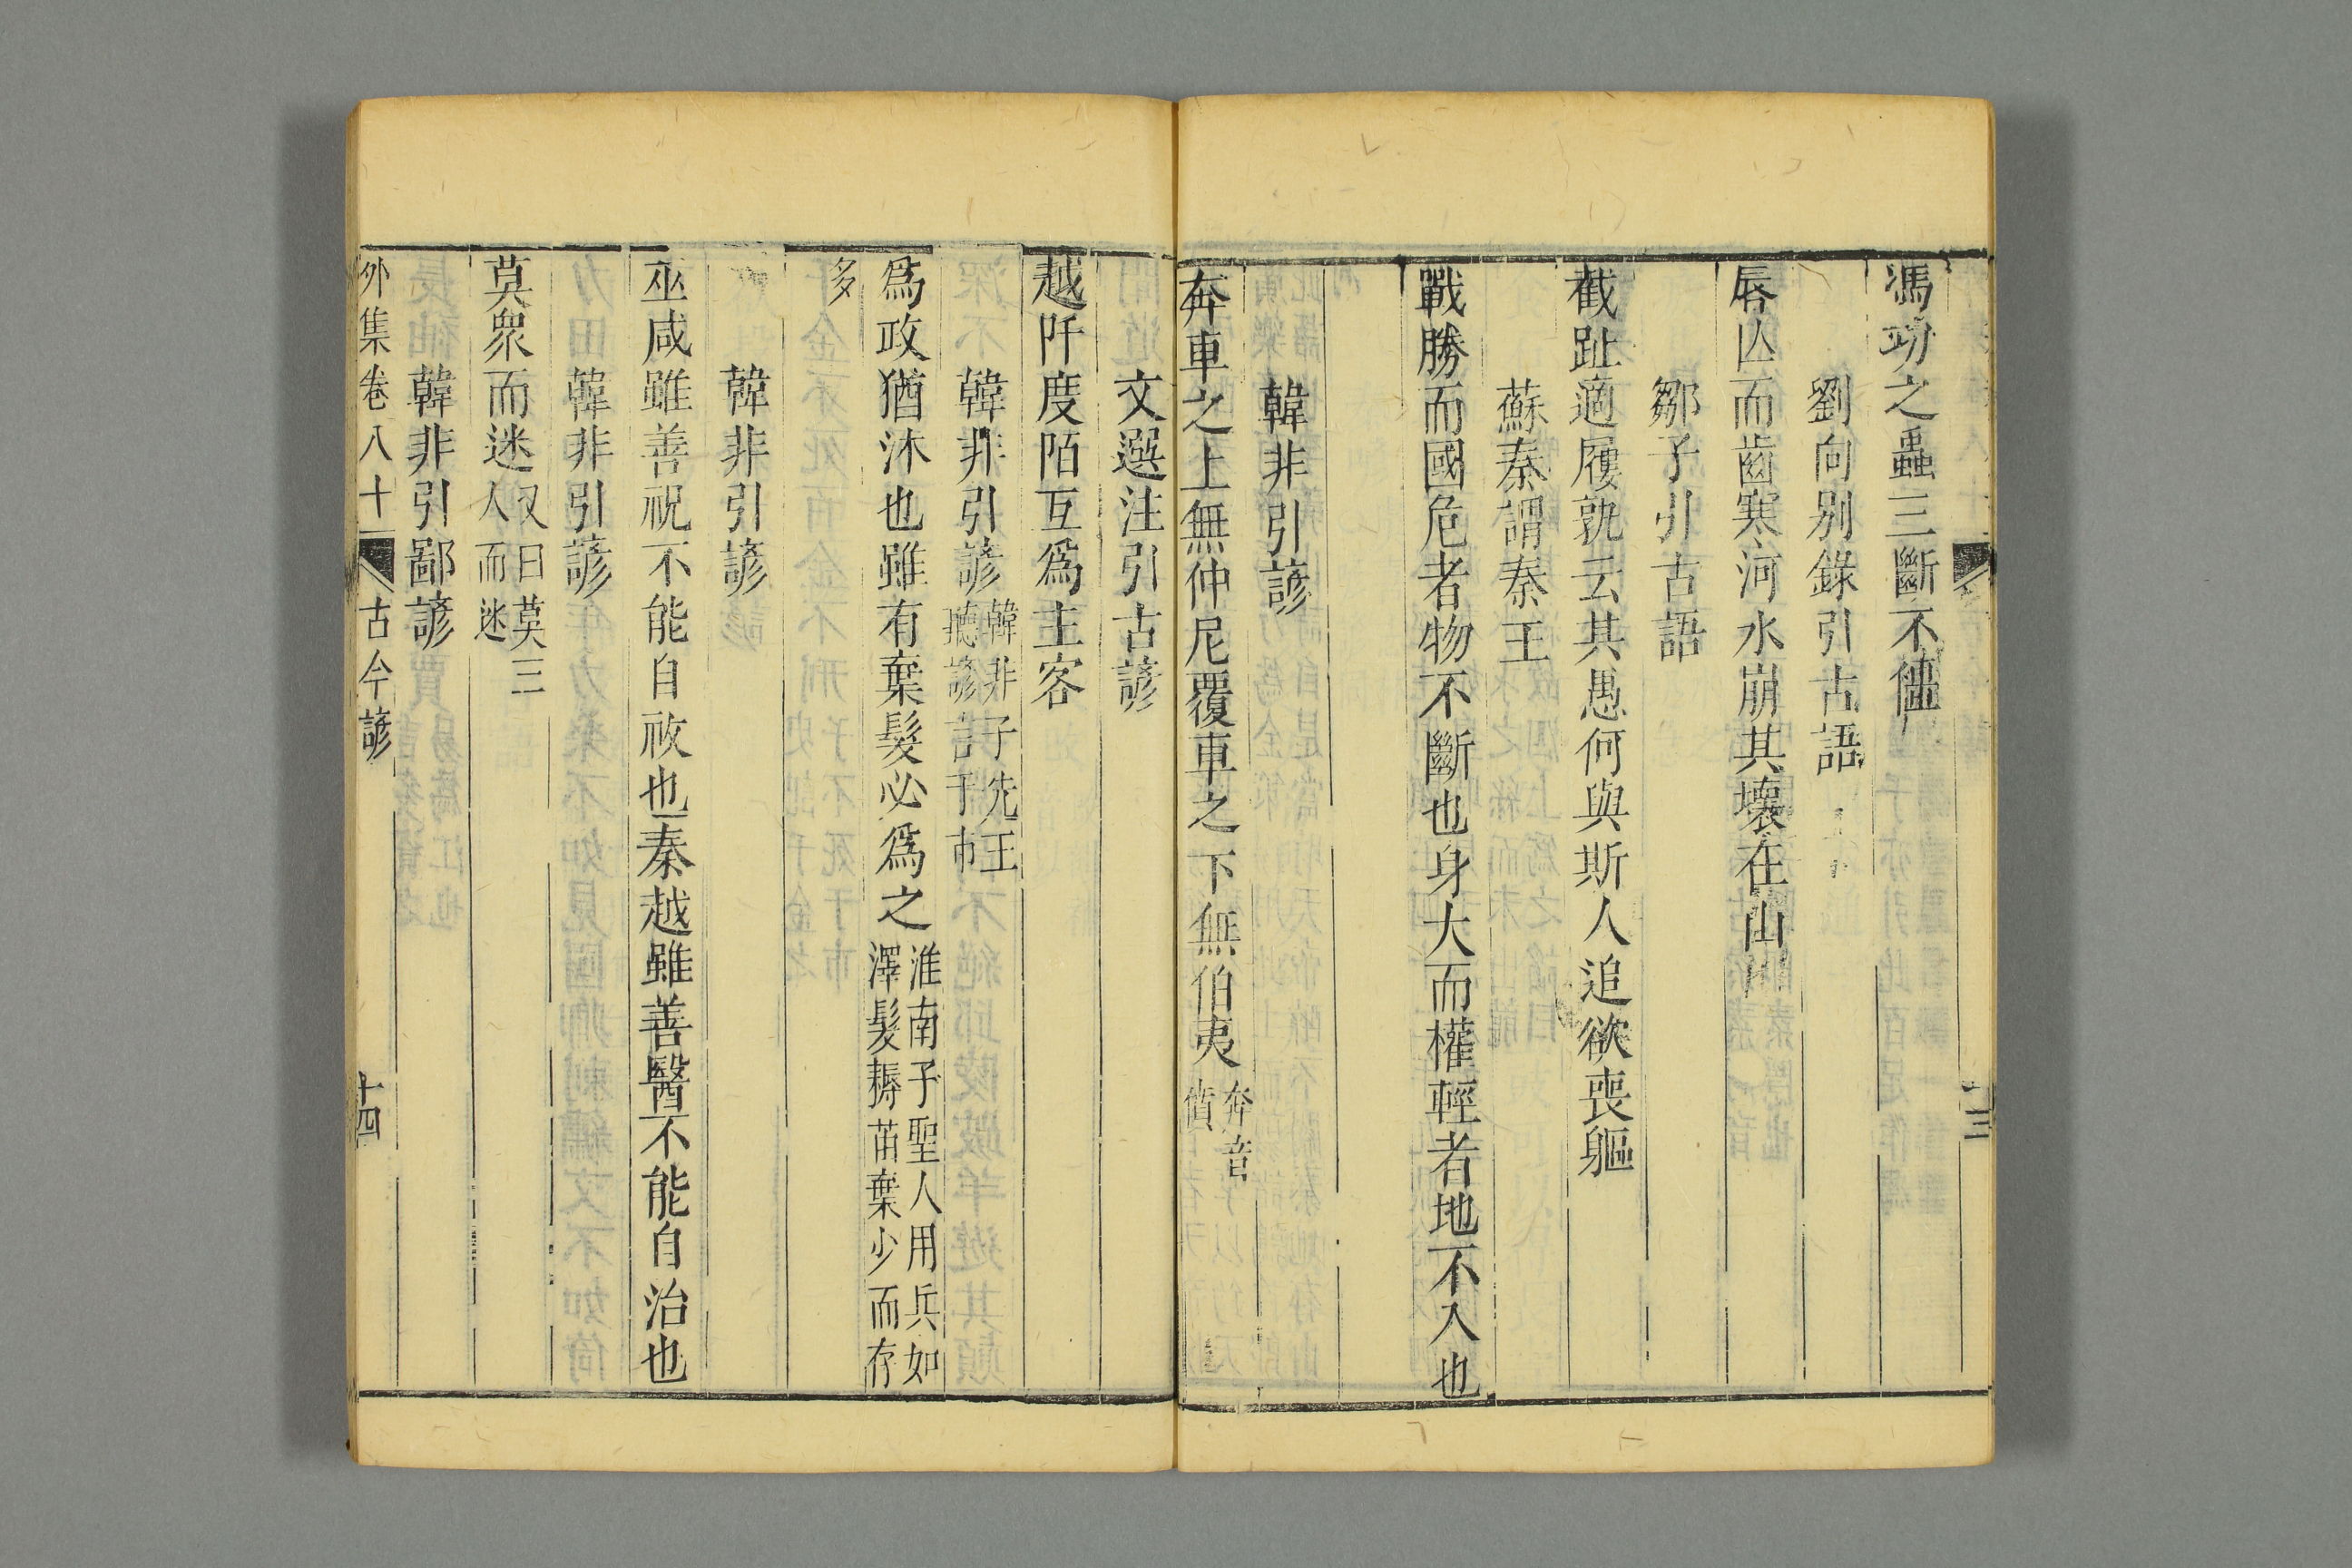 馮功之蟲三斷不僵
劉向別錄引古語
唇亾而齒寒河水崩其壞在山
鄒子引古語
截趾適屨孰云其愚何與斯人追欲喪軀
蘇秦謂秦王
戰勝而國危者物不斷也身大而權輕者地不入也
韓非引諺
奔車之上無仲尼覆車之下無伯夷奔音僨
文選注引古諺
越阡度陌互爲主客
韓非引諺韓非子先王聽諺言于市
爲政猶沐也雖有棄髮必爲之淮南子聖人用兵如澤髮耨苗棄少而存
多
韓非引諺
巫咸雖善祝不能自祓也秦越雖善醫不能自治也
韓非引諺
莫衆而迷又曰莫三人而迷
韓非引鄙諺
外集卷八十一 古今諺 十四